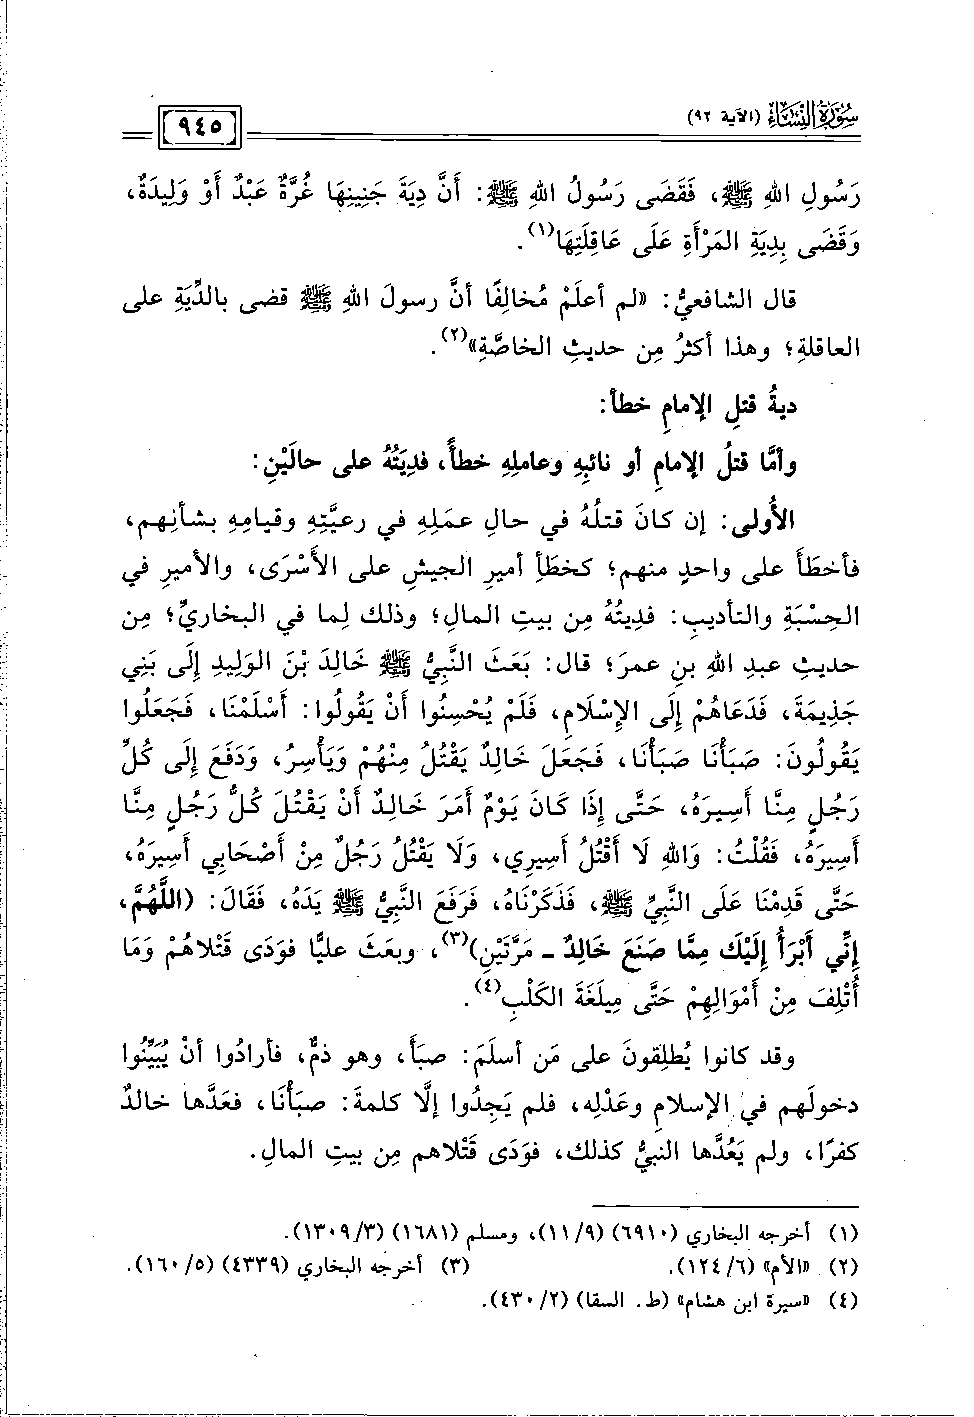 سُورَةُ النِّسَاءِ (الآية ٩٢)
٩٤٥
رَسُولِ اللهِ ﷺ، فَقَضَى رَسُولُ اللهِ ﷺ: أَنَّ دِيَةَ جَنِينِهَا غُرَّةٌ عَبْدٌ أَوْ وَلِيدَةٌ،
وَقَضَى بِدِيَةِ المَرْأَةِ عَلَى عَاقِلَتِهَا(١).
قال الشافعيُّ: «لم أعلَمْ مُخالِفًا أنَّ رسولَ اللهِ ﷺ قضى بالدِّيَةِ على
العاقلةِ؛ وهذا أكثرُ مِن حديثِ الخاصَّةِ»(٢).
ديةُ قتلِ الإمامِ خطأً:
وأمَّا قتلُ الإمامِ أو نائبِهِ وعاملِهِ خطأً، فدِيَتُهُ على حالَيْنِ:
الأُولى: إن كانَ قتلُهُ في حالِ عمَلِهِ في رعيَّتِهِ وقيامِهِ بشأنِهم،
فأخطَأَ على واحدٍ منهم؛ كخطَأِ أميرِ الجيشِ على الأَسْرَى، والأميرِ في
الحِسْبَةِ والتأديبِ: فدِيتُهُ مِن بيتِ المالِ؛ وذلك لِما في البخاريِّ؛ مِن
حديثِ عبدِ اللهِ بنِ عمرَ؛ قال: بَعَثَ النَّبِيُّ ﷺ خَالِدَ بْنَ الوَلِيدِ إِلَى بَنِي
جَذِيمَةَ، فَدَعَاهُمْ إِلَى الإِسْلَامِ، فَلَمْ يُحْسِنُوا أَنْ يَقُولُوا: أَسْلَمْنَا، فَجَعَلُوا
يَقُولُونَ: صَبَأْنَا صَبَأْنَا، فَجَعَلَ خَالِدٌ يَقْتُلُ مِنْهُمْ وَيَأْسِرُ، وَدَفَعَ إِلَى كُلِّ
رَجُلٍ مِنَّا أَسِيرَهُ، حَتَّى إِذَا كَانَ يَوْمٌ أَمَرَ خَالِدٌ أَنْ يَقْتُلَ كُلُّ رَجُلٍ مِنَّا
أَسِيرَهُ، فَقُلْتُ: وَاللهِ لَا أَقْتُلُ أَسِيرِي، وَلَا يَقْتُلُ رَجُلٌ مِنْ أَصْحَابِي أَسِيرَهُ،
حَتَّى قَدِمْنَا عَلَى النَّبِيِّ ﷺ، فَذَكَرْنَاهُ، فَرَفَعَ النَّبِيُّ ﷺ يَدَهُ، فَقَالَ: (اللَّهُمَّ،
إِنِّي أَبْرَأُ إِلَيْكَ مِمَّا صَنَعَ خَالِدٌ ـ مَرَّتَيْنِ)(٣)، وبعَثَ عليًّا فوَدَى قَتْلَاهُمْ وَمَا
أُتْلِفَ مِنْ أَمْوَالِهِمْ حَتَّى مِيلَغَةَ الكَلْبِ(٤).
وقد كانوا يُطلِقونَ على مَن أسلَمَ: صبَأَ، وهو ذمٌّ، فأرادُوا أنْ يُبَيِّنُوا
دخولَهم في الإسلامِ وعَدْلِه، فلم يَجِدُوا إلَّا كلمةَ: صبَأْنَا، فعَدَّها خالدٌ
كفرًا، ولم يَعُدَّها النبيُّ كذلك، فوَدَى قَتْلاهم مِن بيتِ المالِ.
(١) أخرجه البخاري (٦٩١٠) (١١/٩)، ومسلم (١٦٨١) (١٣٠٩/٣).
(٢) «الأم» (١٢٤/٦). (٣) أخرجه البخاري (٤٣٣٩) (١٦٠/٥).
(٤) «سيرة ابن هشام» (ط. السقا) (٤٣٠/٢).